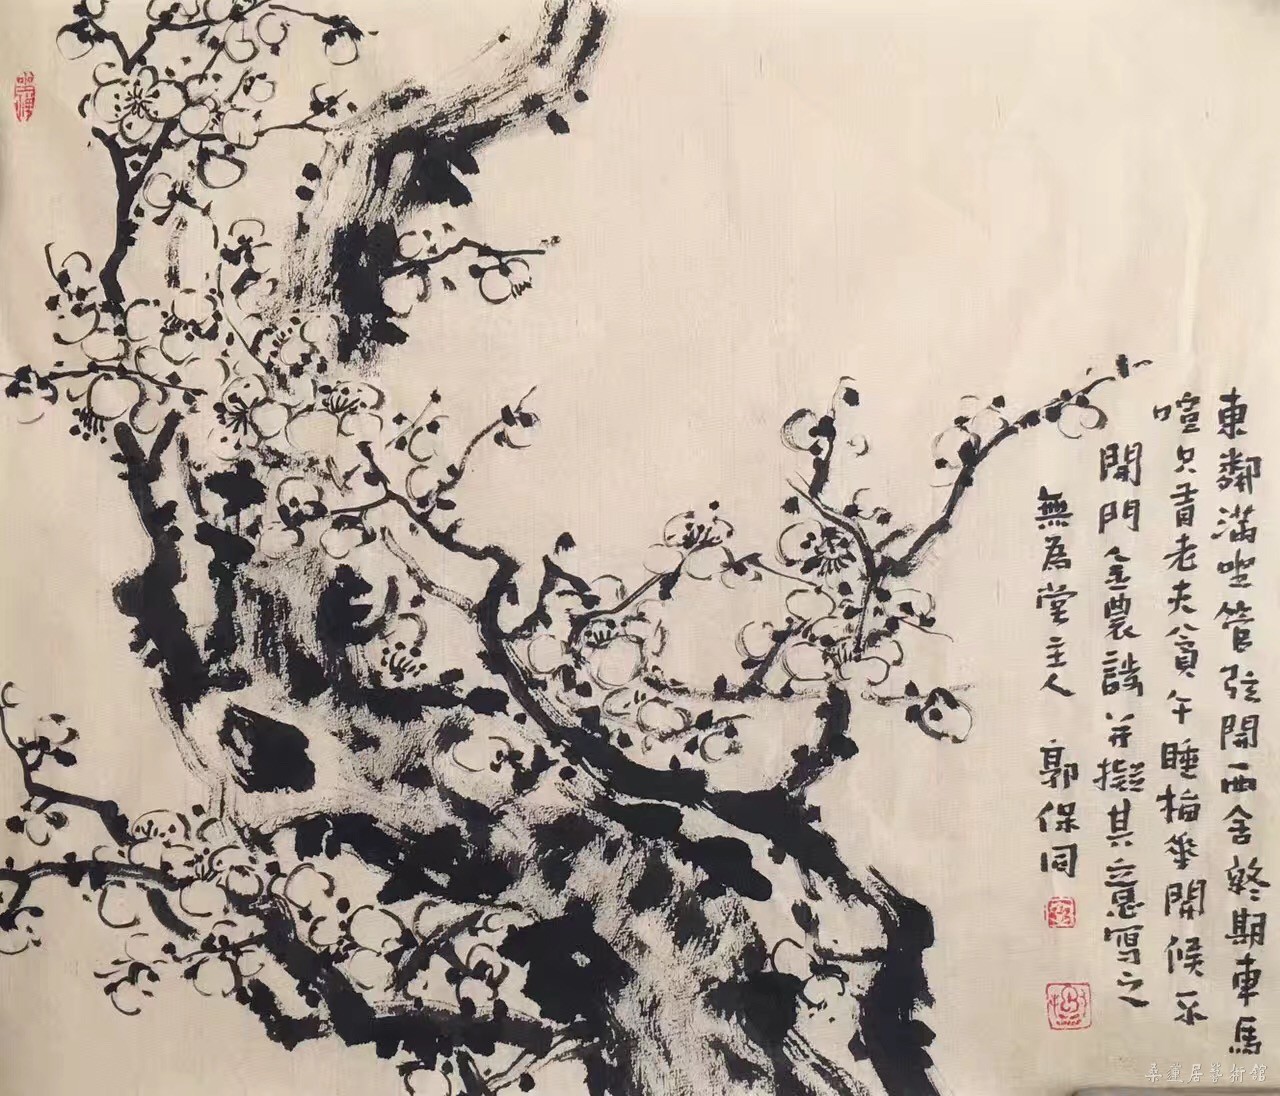 東鄰滿坐管弦閙西舍終期車馬
喧只有老夫貪午睡梅華開候不
開門金農詩并擬其立意寫之
無為堂主人 郭保同
桑蓮居藝術館